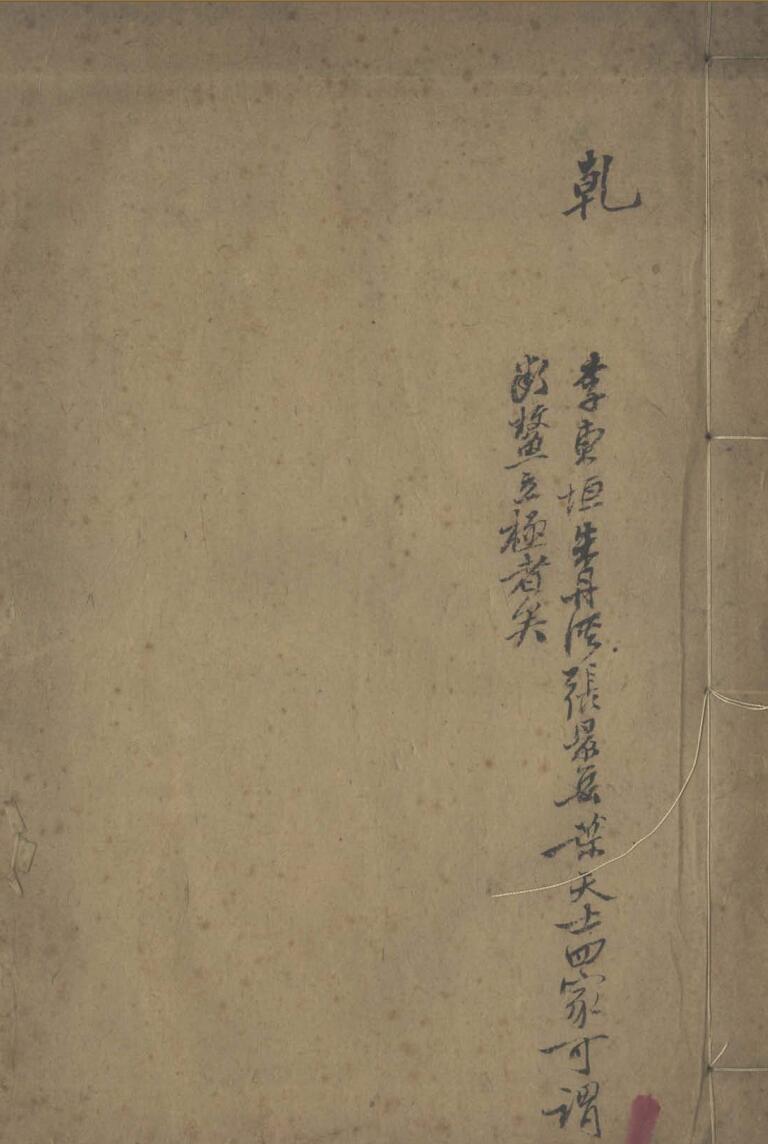 乾
李東垣朱丹溪張景岳葉天士四家可謂
断鰲立極者矣